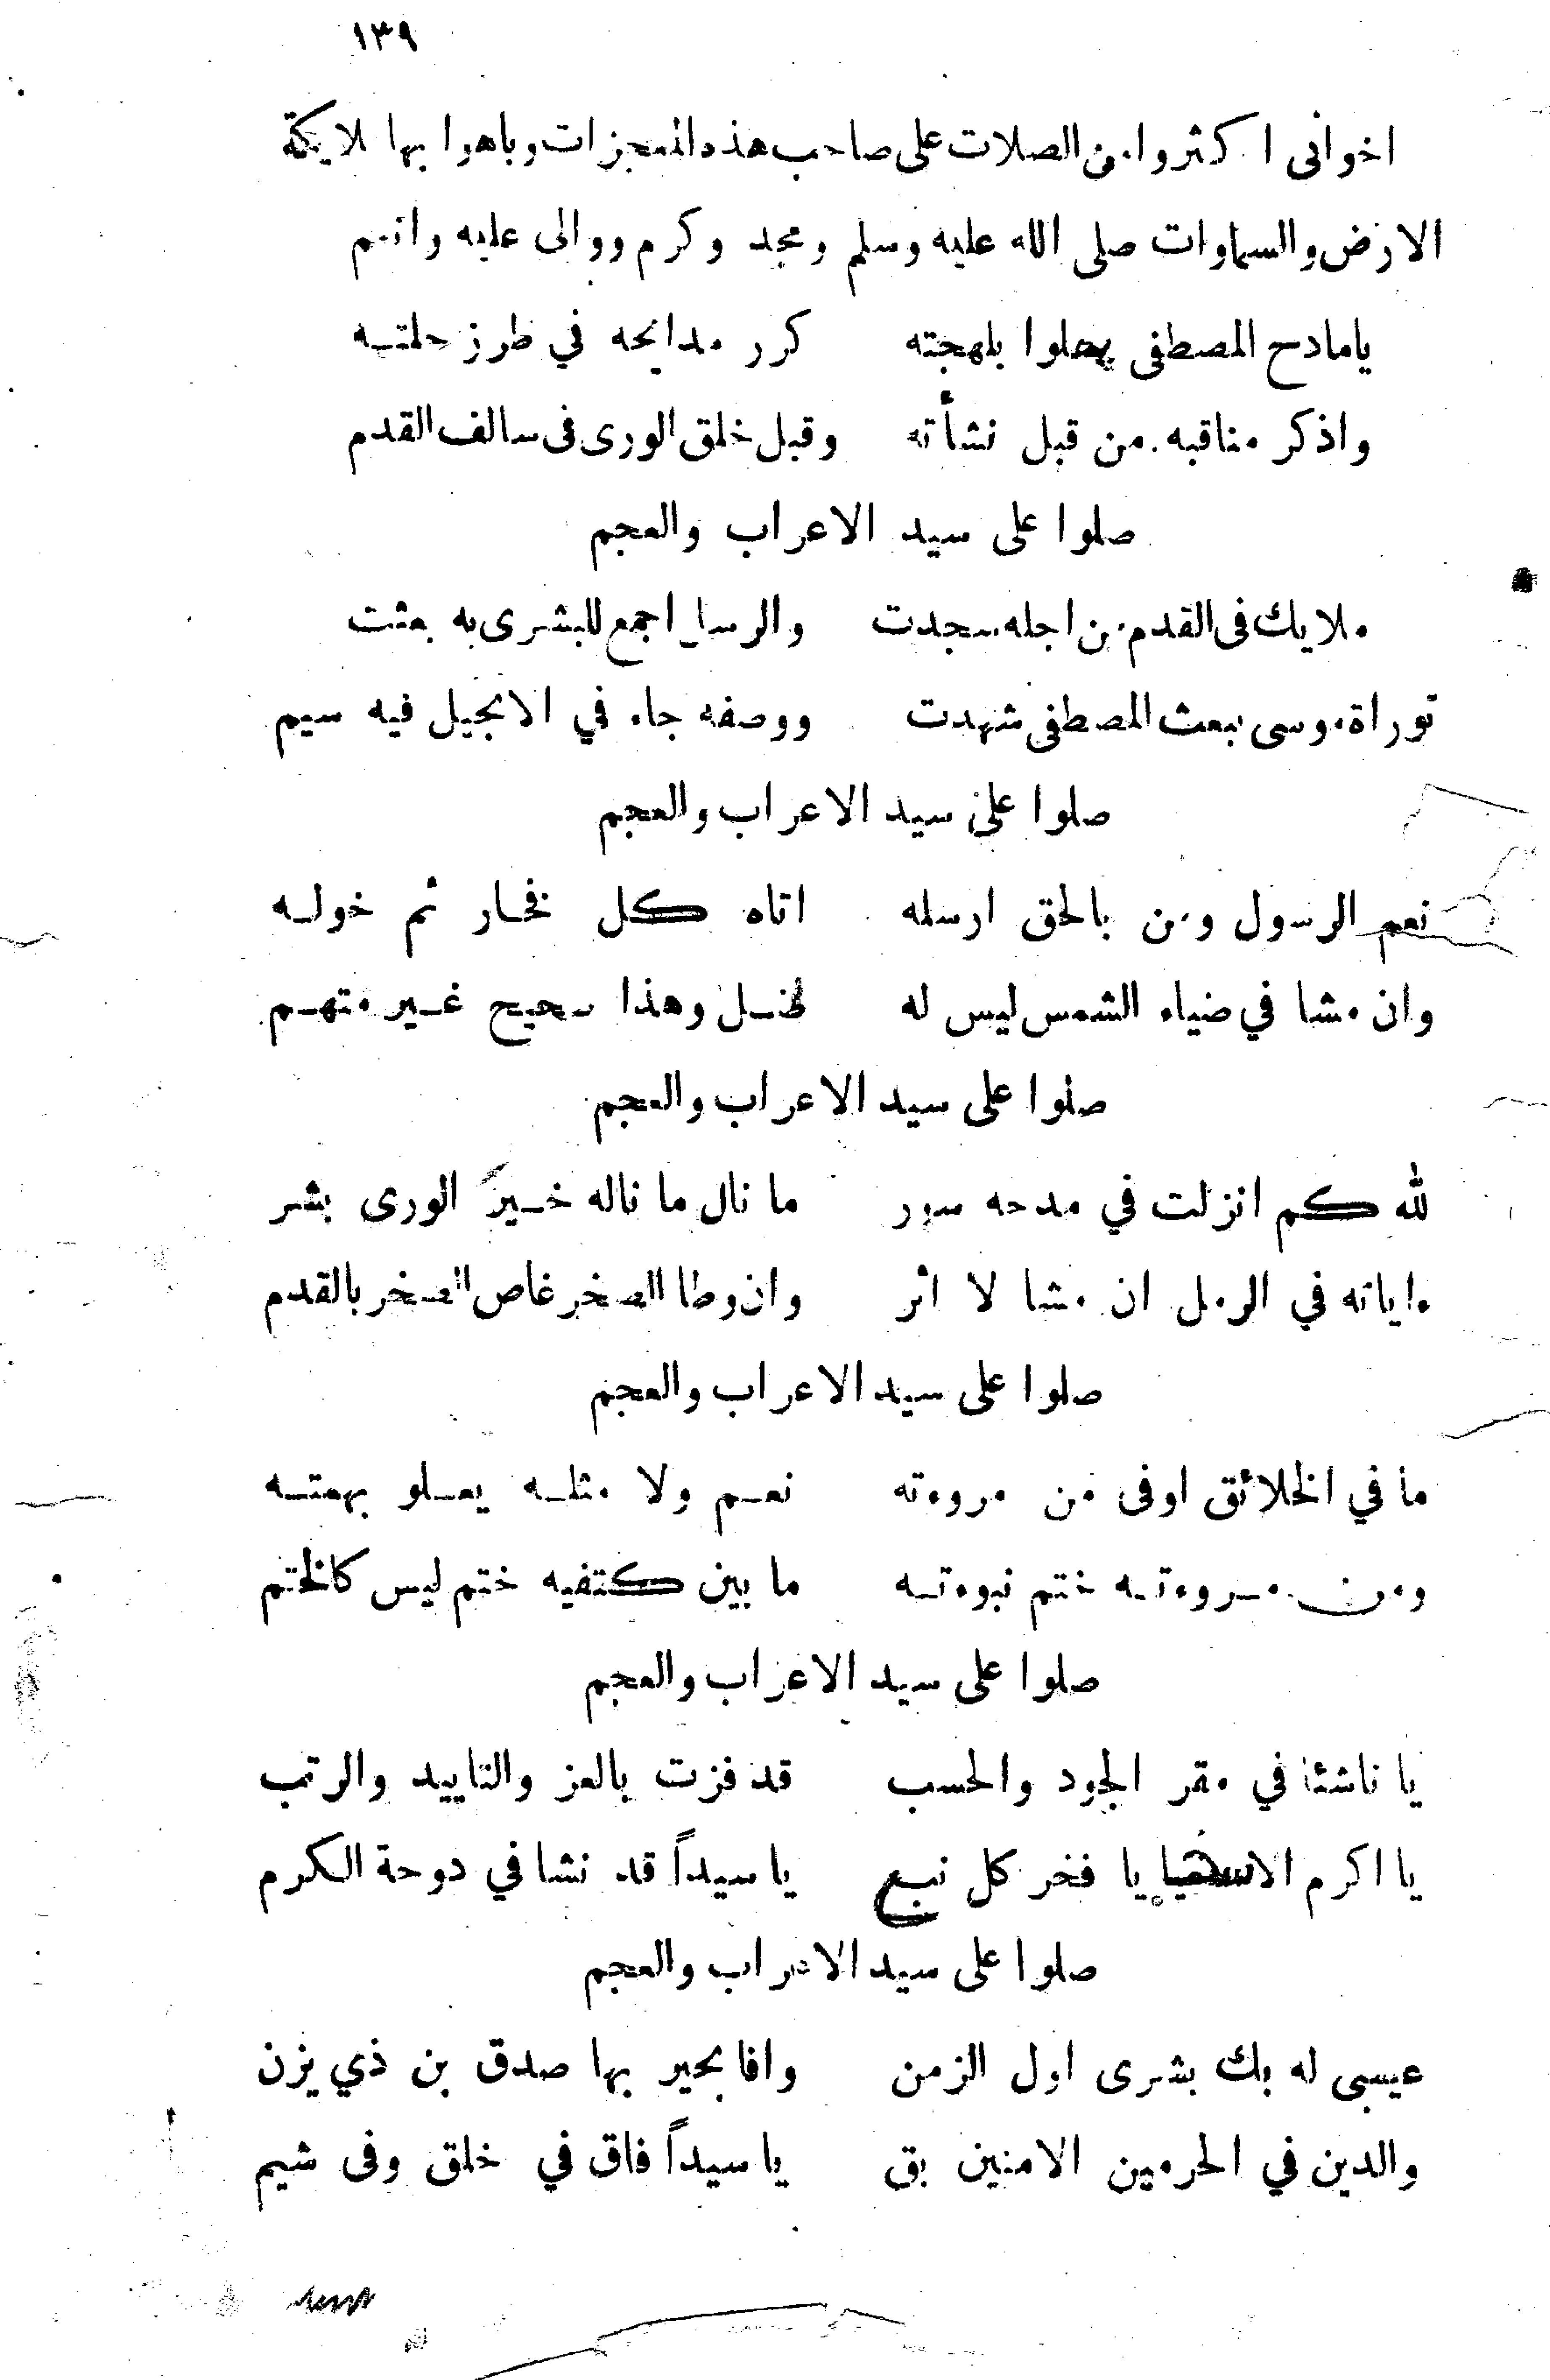 ١٣٩
اخواني اكثروا من الصلات على صاحب هذه المعجزات وباهوا بها لايكة
الارض والسماوات صلى الله عليه وسلم ومجد وكرم ووالى عليه وانعم
يامادح المصطفى يحلوا بلهجته كرر مدايحه في طرز حلتـه
واذكر مناقبه من قبل نشأته وقبل خلق الورى فى سالف القدم
صلوا على سيد الاعراب والعجم
ملايك فى القدم من اجله سجدت والرسل اجمع للبشرى به بعثت
توراة موسى ببعث المصطفى شهدت ووصفه جاء في الانجيل فيه سيم
صلوا على سيد الاعراب والعجم
نعم الرسول ومن بالحق ارسله اتاه كل فخار ثم خولـه
وان مشا في ضياء الشمس ليس له ظـل وهذا صحيح غـير متهـم
صلوا على سيد الاعراب والعجم
لله كم انزلت في مدحه سور ما نال ما ناله خـير الورى بشر
اياته في الرمل ان مشا لا اثر وان وطا الصخر غاص الصخر بالقدم
صلوا على سيد الاعراب والعجم
ما في الخلائق اوفى من مروءته نعـم ولا مثلـه يعـلو بهمتـه
ومن مـروءتـه ختم نبوءتـه ما بين كتفيه ختم ليس كالختم
صلوا على سيد الاعراب والعجم
يا ناشئا في مقر الجود والحسب قد فزت بالعز والتاييد والرتب
يا اكرم يا فخر كل يا سيداً قد نشا في دوحة الكرم
صلوا على سيد الاعراب والعجم
عيسى له بك بشرى اول الزمن وافا بحير بها صدق بن ذي يزن
والدين في الحرمين الامنين بق يا سيداً فاق في خلق وفى شيم